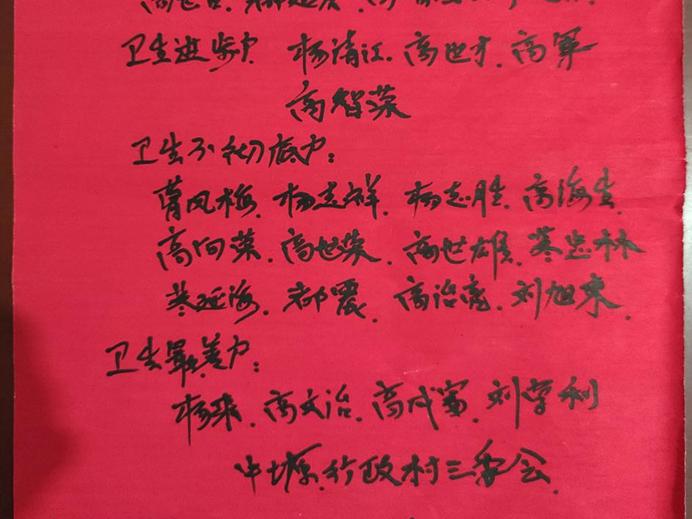 卫生进步户 杨清江、高世才、高军
高智荣
卫生不彻底户：
曹凤梅、杨志祥、杨志胜、高海生、
高向荣、高世荣、高世雄、
海、郝震、高治亮、刘旭东、
卫生最差户：
杨来、高文治、高成富、刘学利
中塬行政村三委会